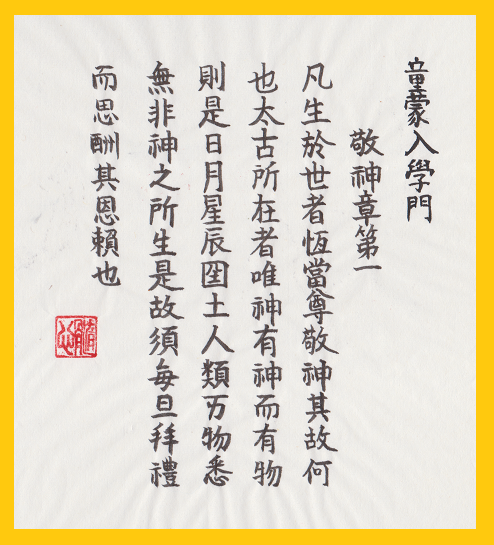 童蒙入學門
敬神章第一
凡生於世者恆當尊敬神其故何
也太古所在者唯神有神而有物
則是日月星辰囯土人類万物悉
無非神之所生是故須每旦拜禮
而思酬其恩賴也